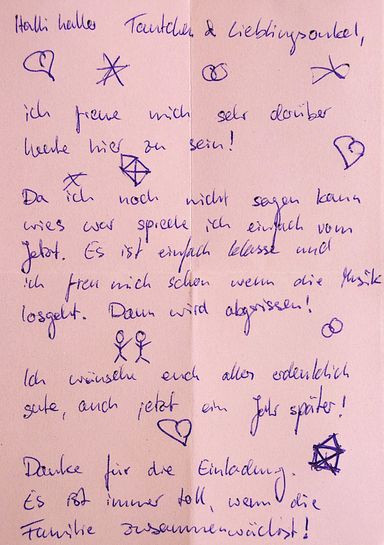 Halli hallo Tantchen & Lieblingsonkel,
ich freue mich sehr darüber
heute hier zu sein!
Da ich noch nicht sagen kann
wies war spreche ich einfach vom
Jetzt. Es ist einfach klasse und
ich freu mich schon wenn die Musik
losgeht. Dann wird abgerissen!
Ich wünsche euch alles erdenklich
gute, auch jetzt ein Jahr später!
Danke für die Einladung.
Es ist immer toll, wenn die
Familie zusammenwächst!